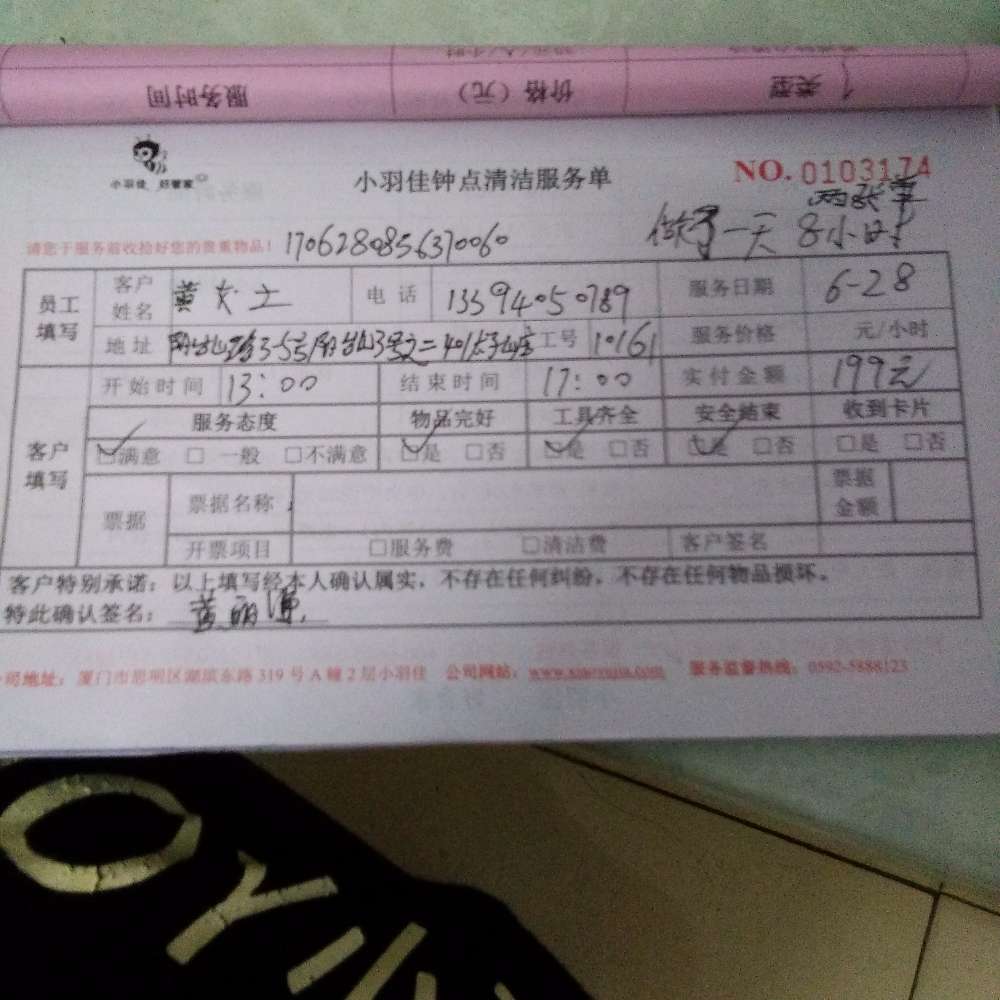 服务时间 价格（元） 类型
小羽佳 好管家
小羽佳钟点清洁服务单
NO. 0103174
两张单
请您于服务前收拾好您的贵重物品！ 1706280856370060 做了一天 8小时
员工填写 客户姓名 黄女士 电话 13394050789 服务日期 6-28
地址 工号 10161 服务价格 元/小时
开始时间 13:00 结束时间 17:00 实付金额 199元
客户填写 服务态度 物品完好 工具齐全 安全结束 收到卡片
☑满意 □一般 □不满意 ☑是 □否 ☑是 □否 ☑是 □否 □是 □否
票据 票据名称 票据金额
开票项目 □服务费 □清洁费 客户签名
客户特别承诺：以上填写经本人确认属实，不存在任何纠纷，不存在任何物品损坏。
特此确认签名：
公司地址：厦门市思明区湖滨东路319号A幢2层小羽佳 公司网站： 服务监督热线：0592-5888123